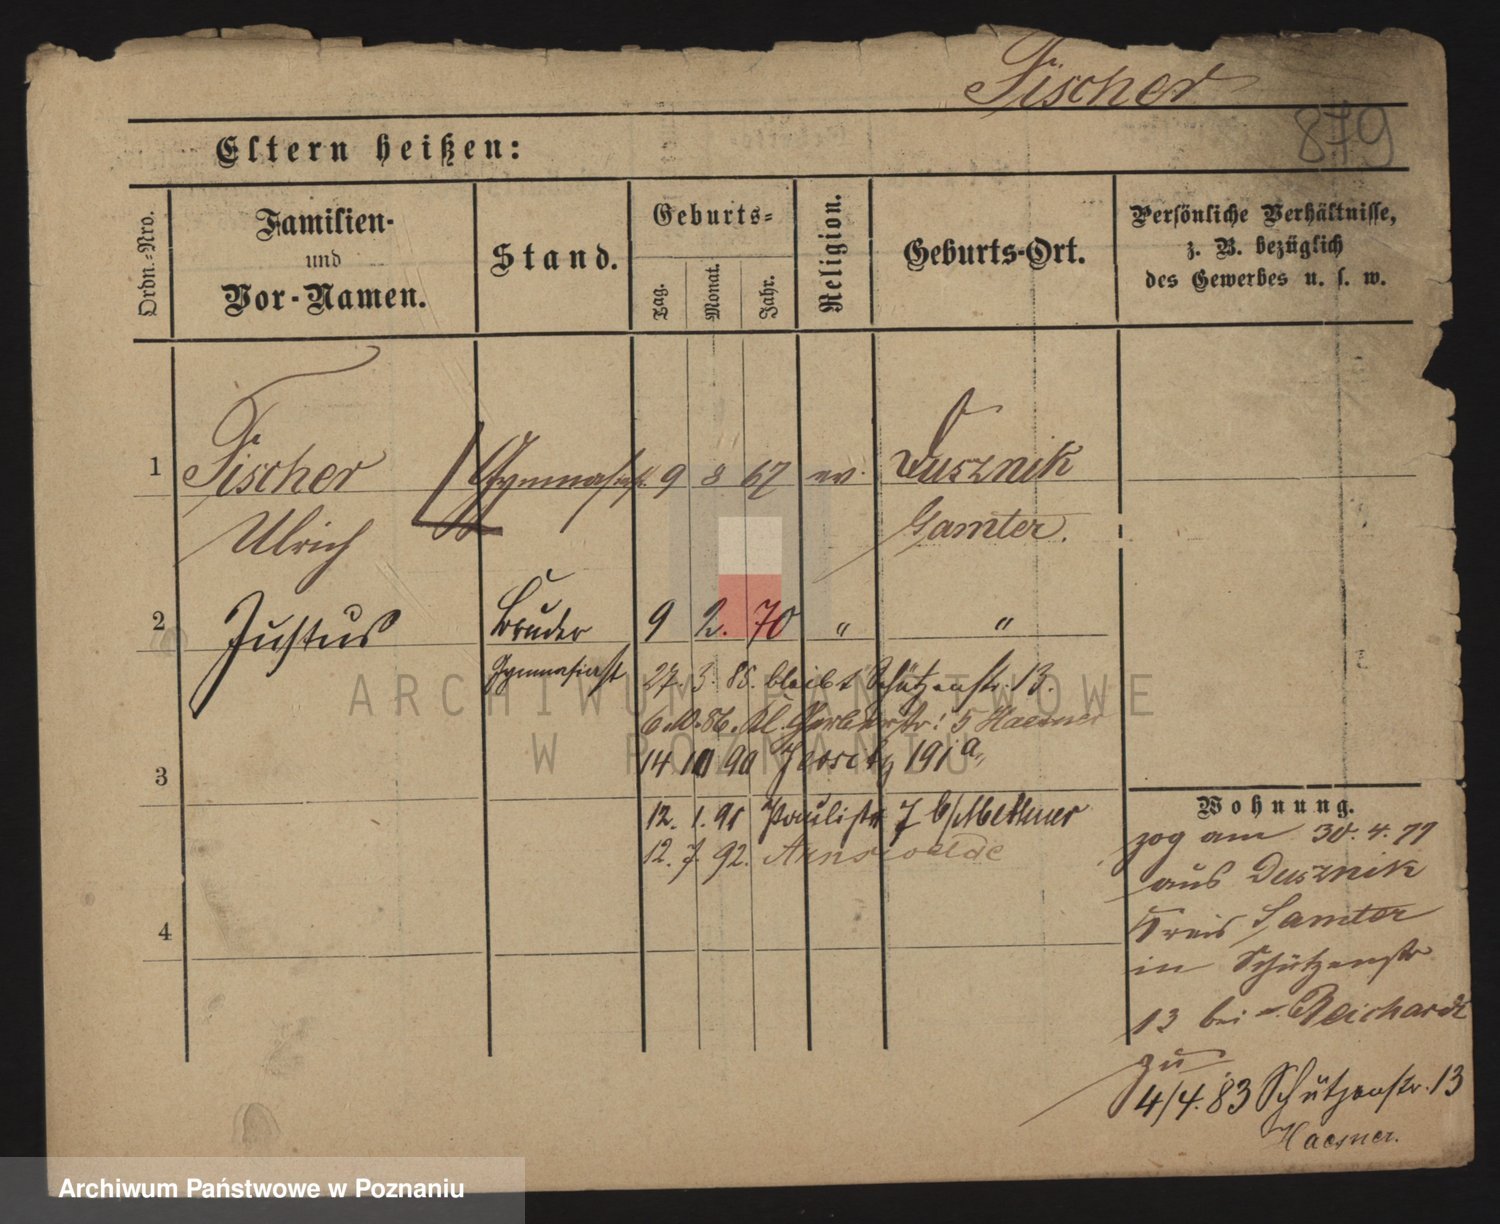 Fischer
879
Eltern heißen:
Ordn.-Nro.
Familien-
und
Vor-Namen.
Stand.
Geburts-
Tag.
Monat.
Jahr.
Religion.
Geburts-Ort.
Persönliche Verhältnisse,
z. B. bezüglich
des Gewerbes u. s. w.
1 Fischer Gymnasiast 9 8 67 ev. Dusznik
Ulrich Samter.
2 Justus Bruder 9 2. 70 " "
Gymnasiast 27. 3. 85. bleibt Schützenstr. 13.
6.10.86. Kl. Gerberstr. 5 Haesner
3 14 10 90 Jersitz 191a
Wohnung.
12. 1. 91 Paulistr 7 b/
12. 7. 92. Arnswalde
zog am 30. 4. 79
aus Dusznik
4 Kreis Samter
in Schützenstr
13 bei Reichardt
zu
4/4. 83 Schützenstr. 13
Haesner.
ARCHIWUM PAŃSTWOWE
W POZNANIU
Archiwum Państwowe w Poznaniu